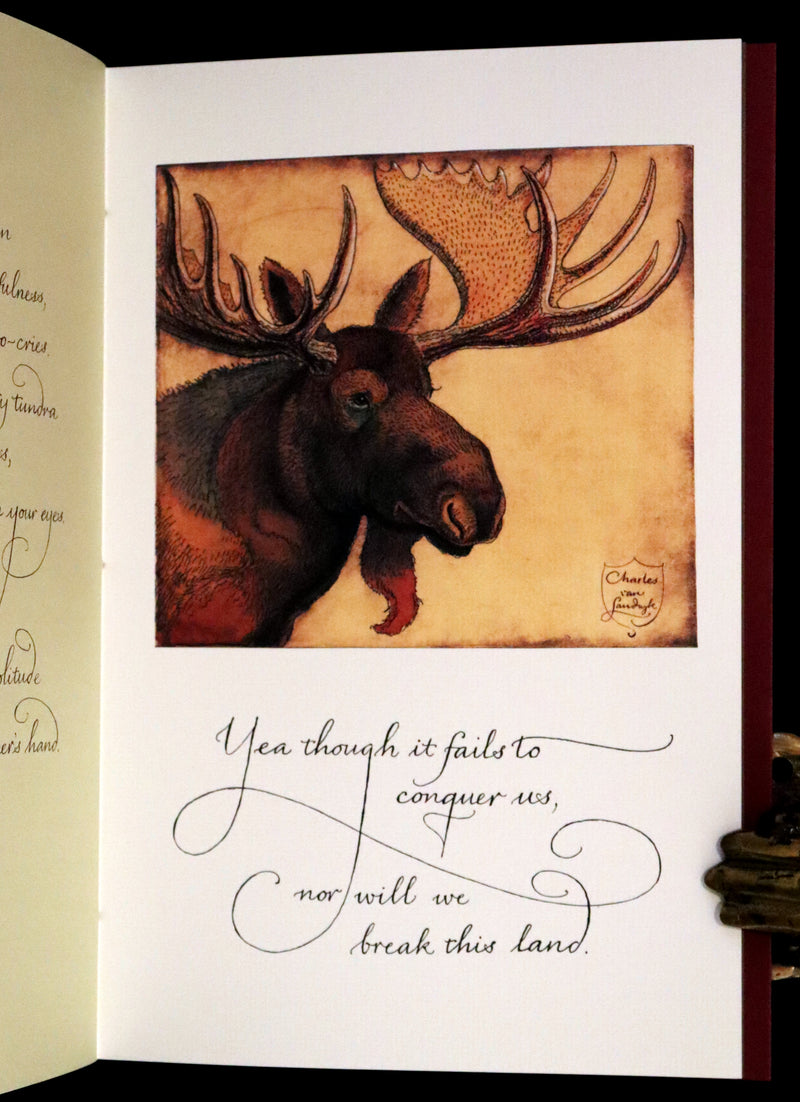 n
fulness,
o-cries.
y tundra
s,
your eyes.
olitude
er's hand.
Charles
van
Sandwyk
Yea though it fails to
conquer us,
nor will we
break this land.